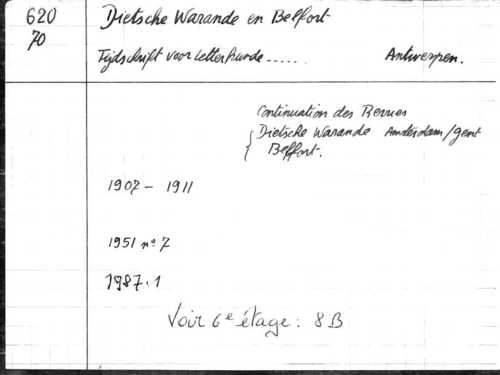 620
70
Dietsche Warande en Belfort
Tijdschrift voor letterkunde.....
Antwerpen.
Continuation des Revues
Dietsche Warande Amsterdam/gent
Belfort.
1907 - 1911
1951 nº 7
1987.1
Voir 6e étage : 8B